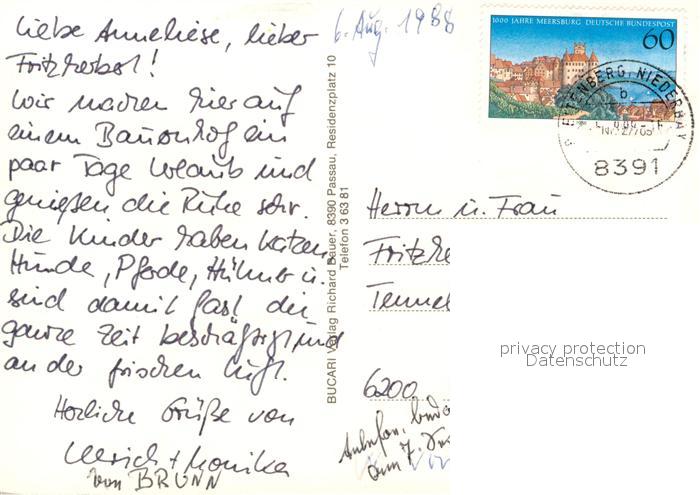 Liebe Anneliese, lieber
Fritzherbert!
Wir machen hier auf
einem Bauernhof ein
paar Tage Urlaub und
genießen die Ruhe sehr.
Die Kinder haben Katzen,
Hunde, Pferde, Hühner u.
sind damit fast die
ganze Zeit beschäftigt und
an der frischen Luft.
Herzliche Grüße von
Ulrich + Monika
von BRUNN
6. Aug. 1988
BUCARI Verlag Richard Bauer, 8390 Passau, Residenzplatz 10
Telefon 3 63 81
1000 JAHRE MEERSBURG DEUTSCHE BUNDESPOST
60
NIEDERBAY
b
8391
Herrn u. Frau
Fritzhe
Tennel
6200
am 7.
privacy protection
Datenschutz